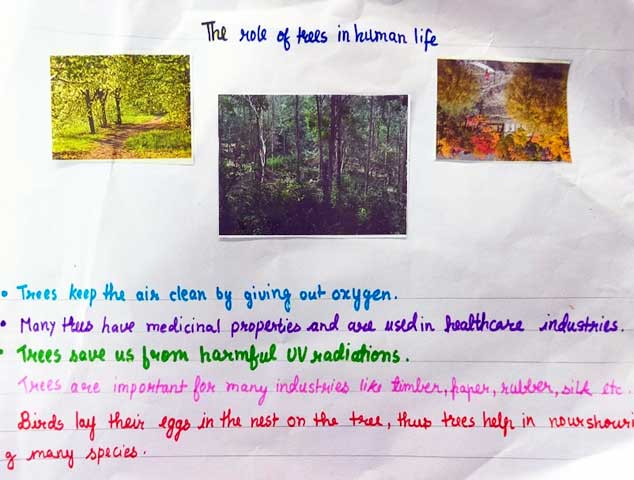 The role of trees in human life
• Trees keep the air clean by giving out oxygen.
• Many trees have medicinal properties and are used in healthcare industries.
• Trees save us from harmful UV radiations.
Trees are important for many industries like timber, paper, rubber, silk etc.
Birds lay their eggs in the nest on the tree, thus trees help in
many species.